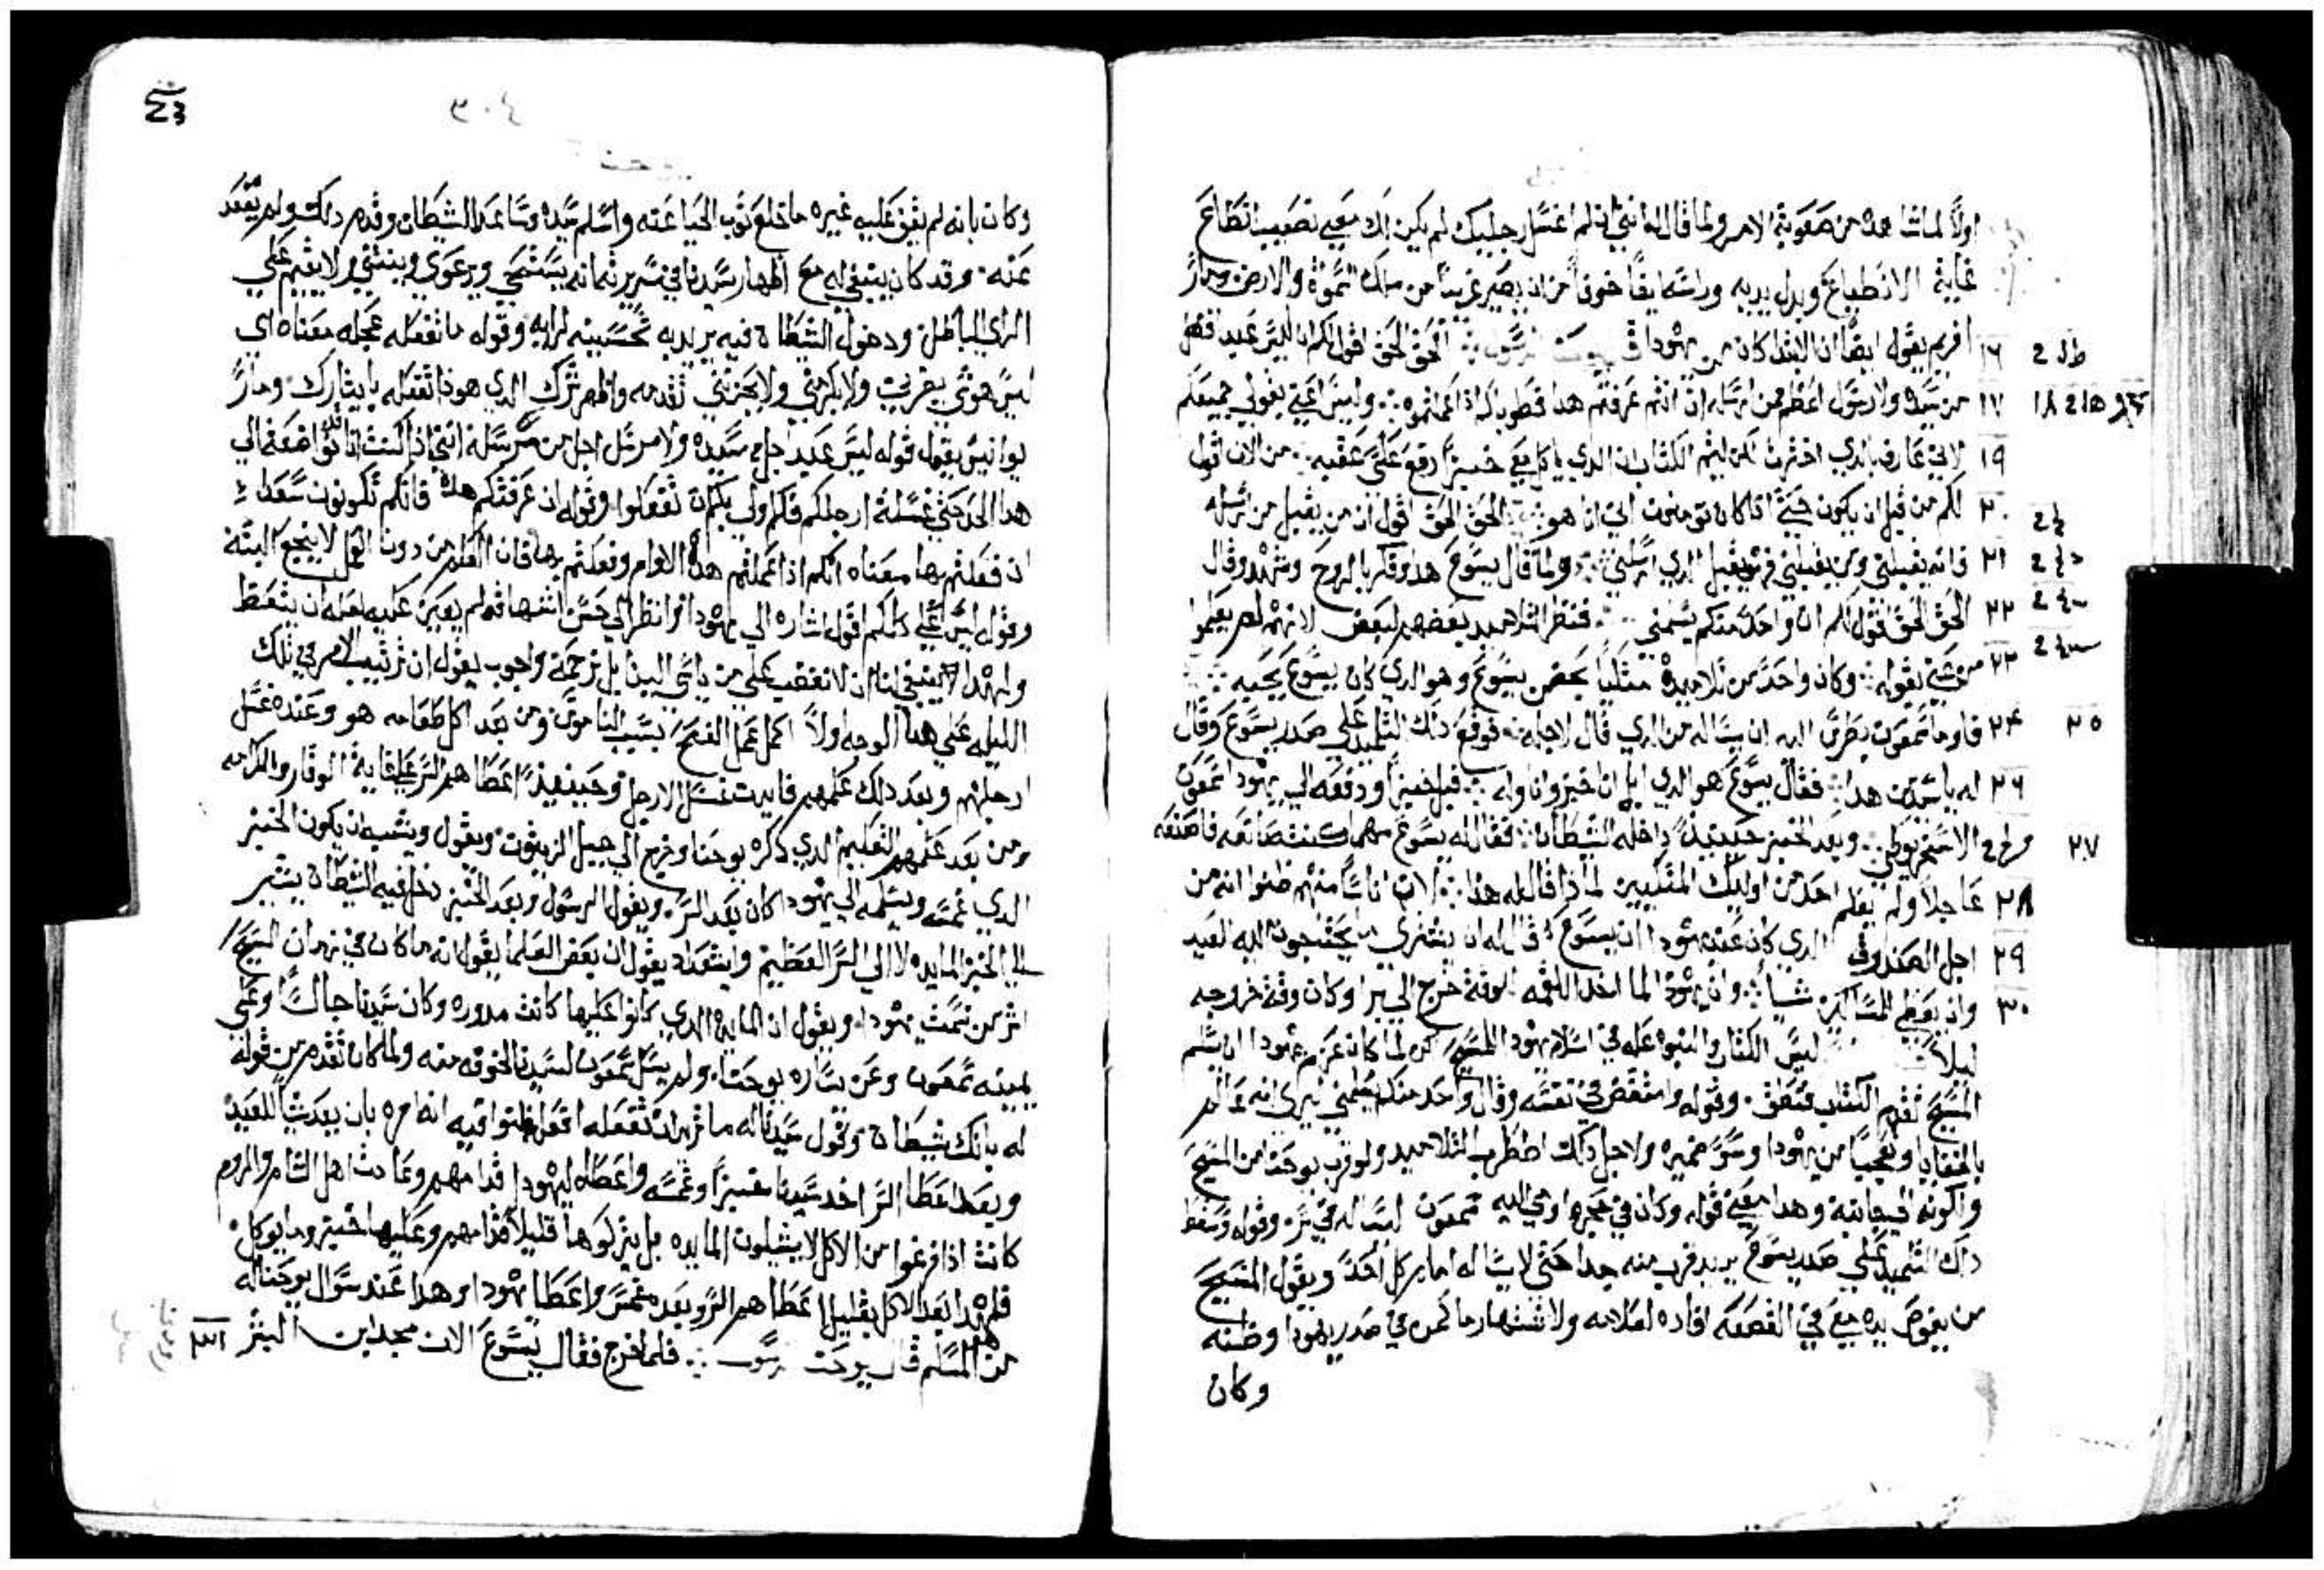 اولاً لما شاهده من صعوبة الامر ولما قال له انني ان لم اغسل رجليك لم يكن لك معي نصيب انطاع
غاية الانطباع وبدل يديه وراسه ايضًا خوفًا من ان يصير غريبًا من ملك السموه والارض ومار
١٦ افريم يقول ايضًا ان الابتدا كان من يهودا قال يوحنا الرسول الحق الحق اقول لكم انه ليس عبد افضل
١٧ من سيده ولا رسول اعظم ممن ارسله ان انتم عرفتم هذا فطوباكم اذا عملتموه وليس اعني بقولي جميعكم
١٩ لاني عارف بالذي اخترت لكن ليتم الكتاب ان الذي ياكل معي خبزًا رفع علي عقبه من الان اقول
٢٠ لكم من قبل ان يكون حتى اذا كان تومنون اني انا هو الحق الحق اقول ان من يقبل من ارسله
٢١ فانه يقبلني ومن يقبلني فهو يقبل الذي ارسلني ولما قال يسوع هذا وقلق بالروح وشهد وقال
٢٢ الحق الحق اقول لكم ان واحدً منكم يسلمني فنظر التلاميد بعضهم لبعض لانهم لم يعلموا
٢٣ من عني بقوله وكان واحدً من تلاميده متكيًا بحضن يسوع وهو الدي كان يسوع يحبه
٢٤ فاوما شمعون بطرس اليه ان يساله من الدي قال لاجله فوقع دلك التلميد علي صدر يسوع وقال ٢٥
٢٦ له يا سيدي من هذا فقال يسوع هو الدي ابل انا خبز واناوله فبل خبزًا ودفعه الي يهودا شمعون
الاسخريوطي وبعد الخبز حينيذً داخله الشيطان فقال له يسوع مهما كنت صانعه فاصنعه ٢٧
٢٨ عاجلاً ولم يعلم احد من اوليك المتكيين لماذا قال له هذا لان اناسًا منهم ظنوا انه من
٢٩ اجل الصندوق الدي كان عند يهودا ان يسوع قال له ان يشتري ما يحتاجون اليه للعيد
٣٠ وان يعطي المساكين شيًا وان يهودا لما اخد اللقمه للوقت خرج الي برا وكان وقت خروجه
ليلاً ليس الكتاب والنبوه عله في اسلام يهودا المسيح لكن لما كان عزم يهودا ان يسلم
المسيح تقدم الكتاب فنطق وقوله وامتعض في نفسه وقال واحد منكم يسلمني يري انه عالم
بالخفايا وتعجبًا من يهودا وسو ضميره ولاجل دلك اضطرب التلاميد ولقرب يوحنا من المسيح
ولكونه الي جانبه وهدا معني قوله وكان في حجره اومي اليه شمعون ليساله في سر وقوله وسقط
داك التلميد علي صدر يسوع يريد قرب منه جدا حتى لا يساله امام كل احد ويقول المسيح
من يغوص يده معي في القصعه افاده لعلامه ولاشتهار ما كمن في صدر يهودا وظنه
وكان
وكان بانه لم يقف عليه غيره ما خلع ثوب الحيا عنه واسلم سيده وساعد الشيطان وقدم دلك ولم يقعد
عنه وقد كان ينبغي له مع اظهار سيدنا في سريرته انه يستحي ويرعوي وينثني ولا يقيم علي
الراي الباطل ودخول الشيطان فيه يريد به تحسينه لرايه وقوله ما تفعله عجله معناه اي
ليس هو شي يغربني ولا يكرهني ولا يحزنني تقدمه واظهر شرك الدي هو ذا تفعله بايثارك ومار
يوانيس يقول قوله ليس عبد اجل من سيده ولا مرسل اجل من مرسله انني اذا كنت انا تواضعت الي
هدا الحد حتى غسلت ارجلكم فلكم ولي بكم ان تفعلوا وقوله ان عرفتكم هده فانكم تكونون سعدا
ان فعلتم بها معناه انكم اذا عملتم هذه الاوامر وفعلتم بها فان العلم من دون العمل لا ينجع البتة
وقول ليس علي كلكم اقول اشاره الي يهودا وانظر الي حسن اشهاقه لم يعين عليه لعله ان يتعظ
ولهدا ينبغي لنا ان لا نغضب علي من ياسي الينا بل نرحمه واجوب يقول ان ترتيب الامر في تلك
الليله علي هدا الوجه اولاً اكمل عمل الفصح بسبب الناموس ومن بعد اكل طعامه هو وعنده غسل
ارجلهم وبعد دلك علمهم فايدت غسل الارجل وحينيذً اعطاهم السر علي غاية الوقار والكرامه
ومن بعد علمهم التعليم الدي دكره يوحنا وخرج الي جبل الزيتون ويقول ويشبه ان يكون الخبز
الدي غمسه ويسلمه الي يهودا كان بعد السر ويقول الرسول وبعد الخبز دخل فيه الشيطان يشير
الي الخبز المايده لا الي السر العظيم وايشعداد يقول ان بعض العلما يقول انه ما كان في زمان المسيح
اشر من يهودا ويقول ان المايده الدي كانوا عليها كانت مدوره وكان سيدنا جالسًا وعلي
يمينه شمعون وعن يساره يوحنا ولم يسل شمعون لسيدنا لخوفه منه ولما كان تقدم من قوله
له بانك شيطان وقول سيدنا له ما تريد تفعله افعل انه امره بان يعد شيًا للعيد
وبعد اعطا السر اخد سيدنا خبزًا وغمسه واعطاه ليهودا قدامهم وعادت اهل الشام والروم
كانت اذا فرغوا من الاكل لا يشيلون المايده بل يتركوها قليلاً قدامهم وعليها خبز وما يوكل
فلهدا بعد الاكل بقليل اعطاهم السر وبعده غمس واعطا يهودا وهدا عند سوال يوحنا له
من المسلم قال يوحنا الرسول فلما خرج فقال يسوع الان مجد ابن البشر ٣١